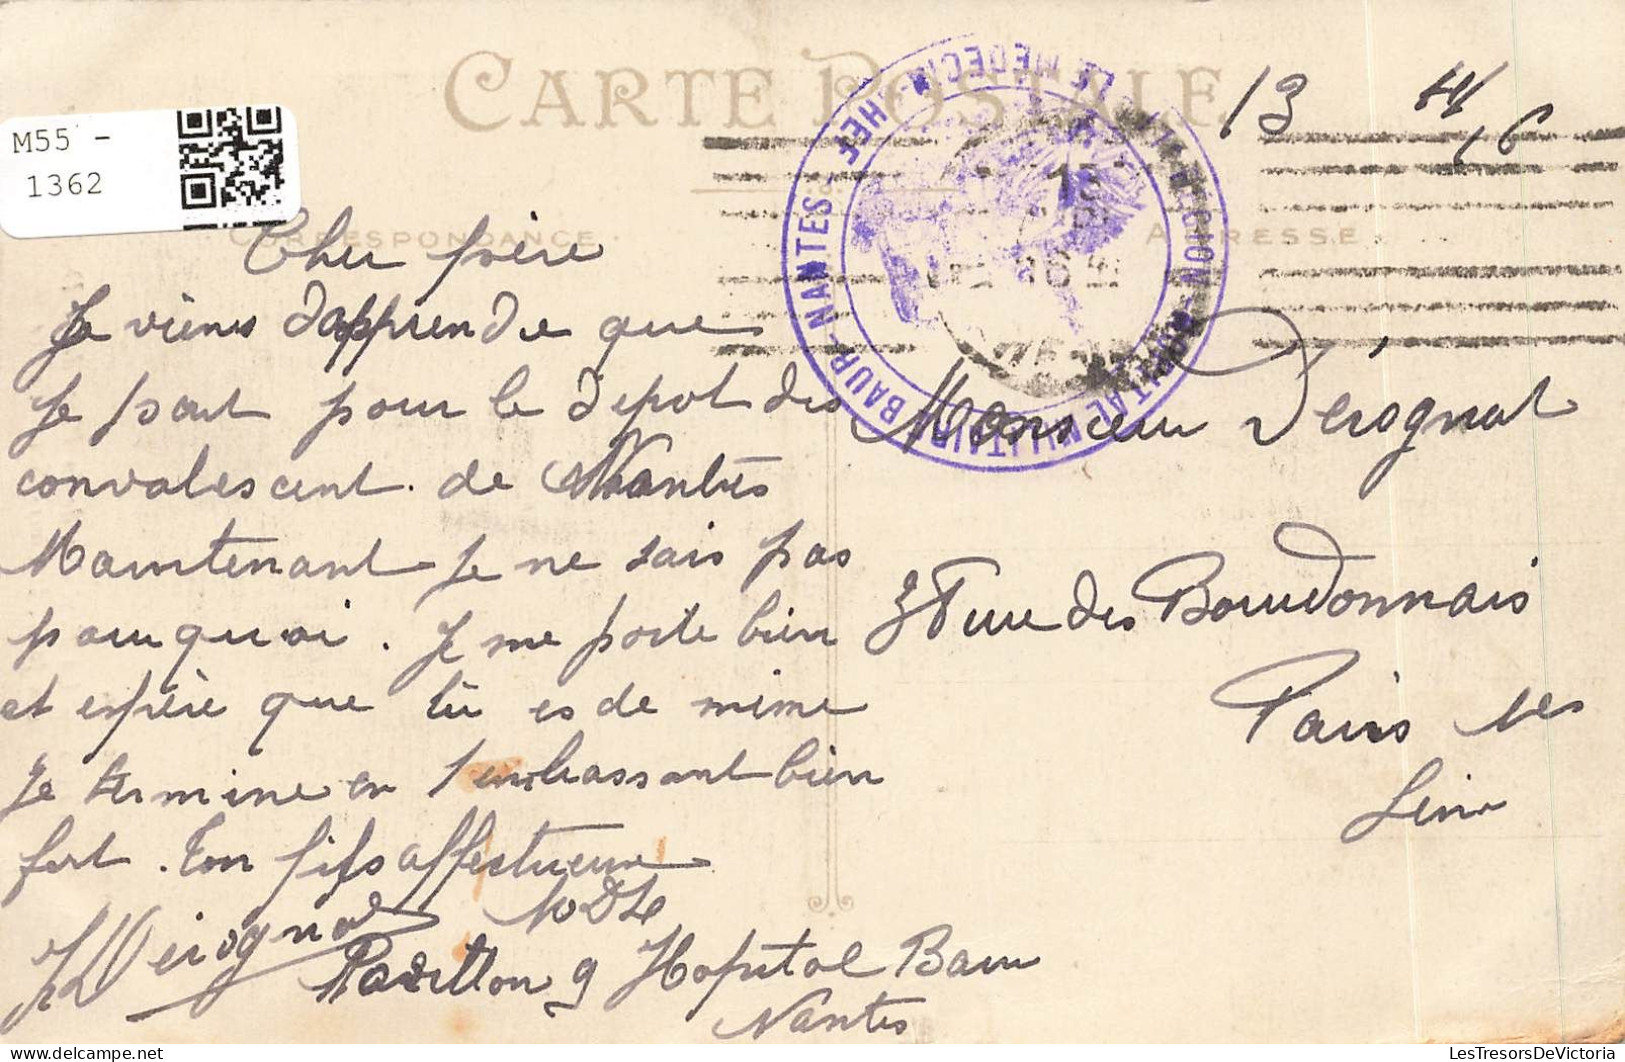 M55 -
1362
CARTE POSTALE
CORRESPONDANCE
ADRESSE
LE MEDECIN CHEF
HOPITAL MILITAIRE BAUR - NANTES -
13
Cher frère
Je viens dapprendre que
Je part pour le depot des
convalescent. de Nantes
Maintenant je ne sais pas
pourquoi. Je me porte bien
et espère que tu es de mime
Je termine en t embrassant bien
fort. Ton fifs affectueux
Dérognat MDL
Pavillon 9 Hopital Baur
Nantes
Monsieur Dérognat
37 rue des Bourdonnais
Paris 1er
Seine
www.LesTresorsDeVictoria.com